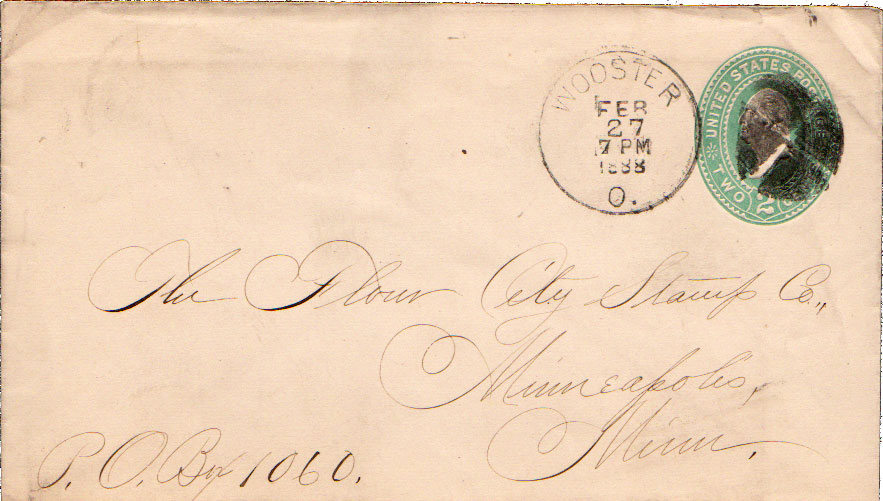 WOOSTER
FEB
27
7 PM
1888
O.
UNITED STATES
TWO 2
The Flour City Stamp Co.,
Minneapolis,
Minn.
P. O. Bx 1060.